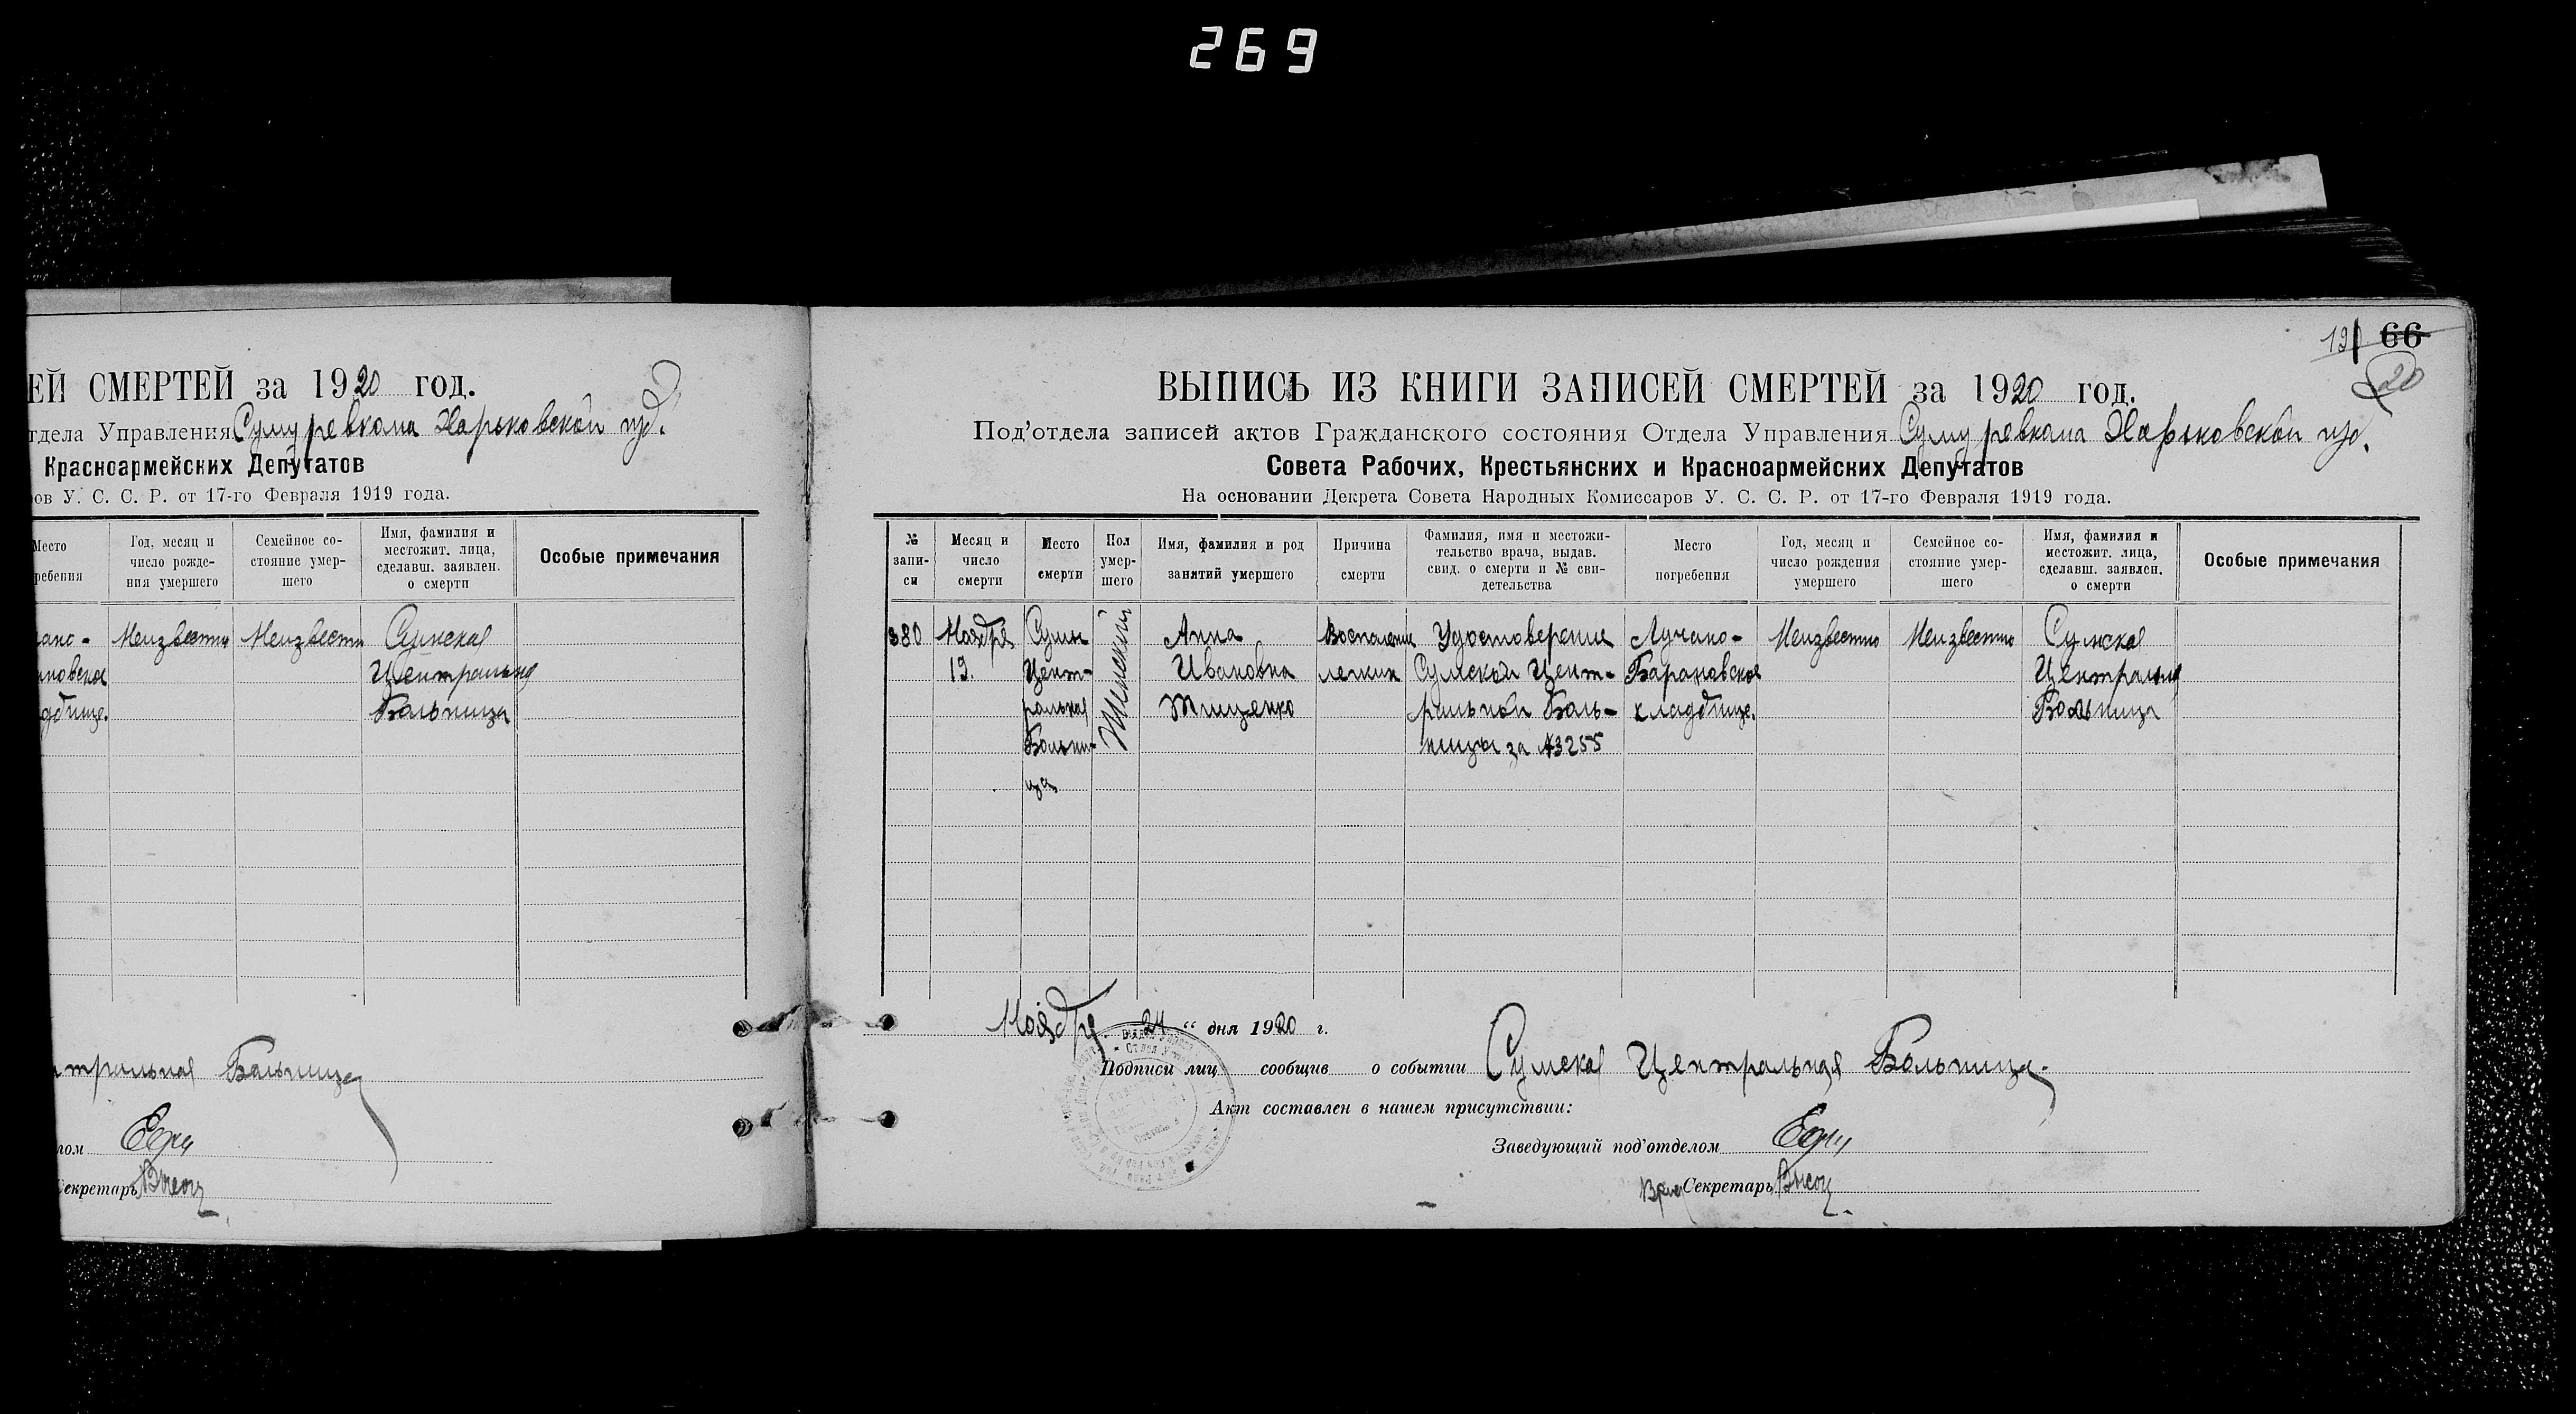 269
ЕЙ СМЕРТЕЙ за 1920 год.
тдела Управления Суму ревкома Харьковской губ.
Красноармейских Депутатов
ов У. С. С. Р. от 17-го Февраля 1919 года.
Место
ребения
Год, месяц и
число рожде-
ния умершего
Семейное со-
стояние умер-
шего
Имя, фамилия и
местожит. лица,
сделавш. заявлен.
о смерти
Особые примечания
Неизвестно Неизвестно Сумская
новское Центральная
дбище. Больница
тральная Больница
Секретарь
66
20
ВЫПИСЬ ИЗ КНИГИ ЗАПИСЕЙ СМЕРТЕЙ за 1920 год.
Под'отдела записей актов Гражданского состояния Отдела Управления Суму ревкома Харьковской губ.
Совета Рабочих, Крестьянских и Красноармейских Депутатов
На основании Декрета Совета Народных Комиссаров У. С. С. Р. от 17-го Февраля 1919 года.
№
запи-
си
Месяц и
число
смерти
Место
смерти
Пол
умер-
шего
Имя, фамилия и род
занятий умершего
Причина
смерти
Фамилия, имя и местожи-
тельство врача, выдав.
свид. о смерти и № сви-
детельства
Место
погребения
Год, месяц и
число рождения
умершего
Семейное со-
стояние умер-
шего
Имя, фамилия и
местожит. лица,
сделавш. заявлен.
о смерти
Особые примечания
880
Ноября
19.
Сумы
Цент-
ральная
Больни-
ца
Женский
Анна
Ивановна
Тищенко
Воспаление
легких
Удостоверение
Сумской Цент-
ральной Боль-
ницы за №3255
Лучано-
Барановское
кладбище.
Неизвестно
Неизвестно
Сумская
Центральная
Больница
Ноября 24 “ дня 1920 г.
Подписи лиц сообщив о событии Сумская Центральная Больница.
Акт составлен в нашем присутствии:
Заведующий под'отделом
Секретарь